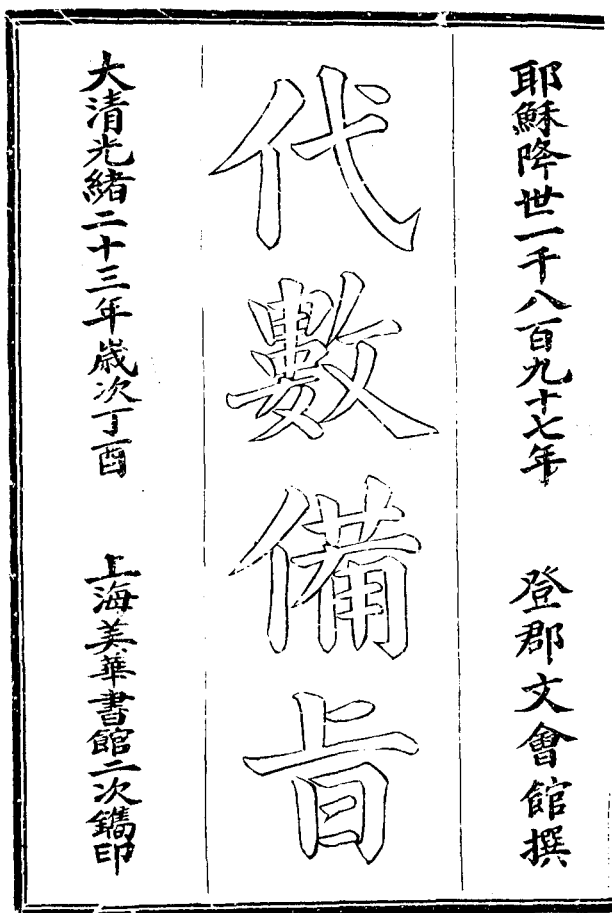 耶穌降世一千八百九十七年 登郡文會館撰
代數備旨
大清光緒二十三年歲次丁酉 上海美華書館二次鐫印